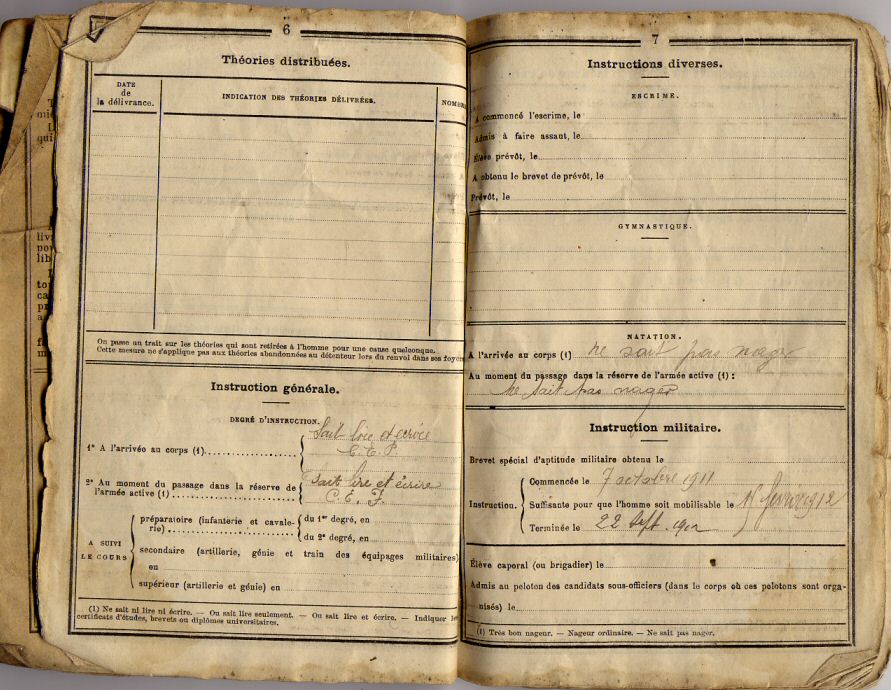 6
Théories distribuées.
DATE
de
la délivrance.
INDICATION DES THÉORIES DÉLIVRÉES.
NOMBRE
On passe un trait sur les théories qui sont retirées à l'homme pour une cause quelconque.
Cette mesure ne s'applique pas aux théories abandonnées au détenteur lors du renvoi dans ses foyers
Instruction générale.
DEGRÉ D'INSTRUCTION.
1° A l'arrivée au corps (1)
Sait lire et écrire
C. E. P
2° Au moment du passage dans la réserve de
l'armée active (1)
Sait lire et écrire
C. E.
A SUIVI
LE COURS
préparatoire (infanterie et cavale-
rie)
du 1er degré, en
du 2e degré, en
secondaire (artillerie, génie et train des équipages militaires)
en
supérieur (artillerie et génie) en
(1) Ne sait ni lire ni écrire. — Ou sait lire seulement. — Ou sait lire et écrire. — Indiquer les
certificats d'études, brevets ou diplômes universitaires.
7
Instructions diverses.
ESCRIME.
A commencé l'escrime, le
Admis à faire assaut, le
Élève prévôt, le
A obtenu le brevet de prévôt, le
Prévôt, le
GYMNASTIQUE.
NATATION.
A l'arrivée au corps (1) ne sait pas nager
Au moment du passage dans la réserve de l'armée active (1) :
ne sait pas nager
Instruction militaire.
Brevet spécial d'aptitude militaire obtenu le
Instruction.
Commencée le 7 octobre 1911
Suffisante pour que l'homme soit mobilisable le février 1912
Terminée le 22 Sept. 1912
Élève caporal (ou brigadier) le
Admis au peloton des candidats sous-officiers (dans le corps où ces pelotons sont orga-
nisés) le
(1) Très bon nageur. — Nageur ordinaire. — Ne sait pas nager.